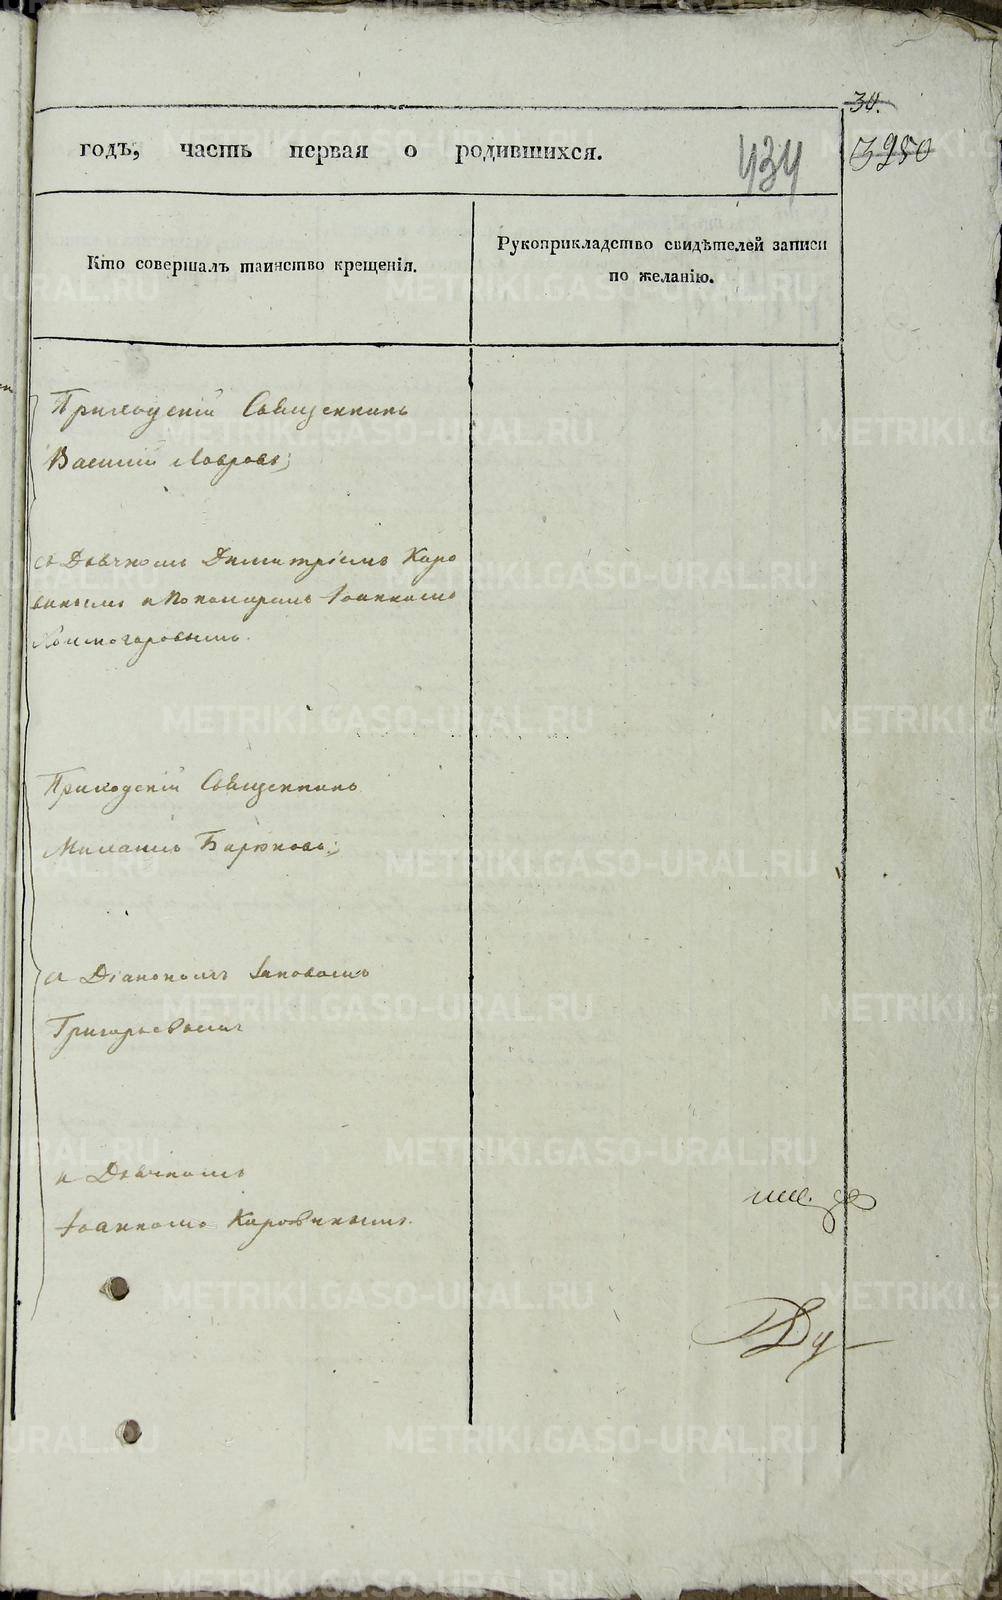 34.
годъ, часть первая о родившихся.
434
3950
Кто совершалъ таинство крещенія.
Рукоприкладство свидѣтелей записи
по желанію.
Приходскій Священникъ
Василій Лавровъ;
съ Дьячкомъ Димитріемъ Каро
виномъ и Пономаремъ Іоанномъ
Холмогоровымъ.
Приходскій Священникъ
Михаилъ Бирюковъ;
съ Діакономъ Іаковомъ
Григорьевымъ
и Дьячкомъ
Іоанномъ Каровинымъ.
METRIKI.GASO-URAL.RU